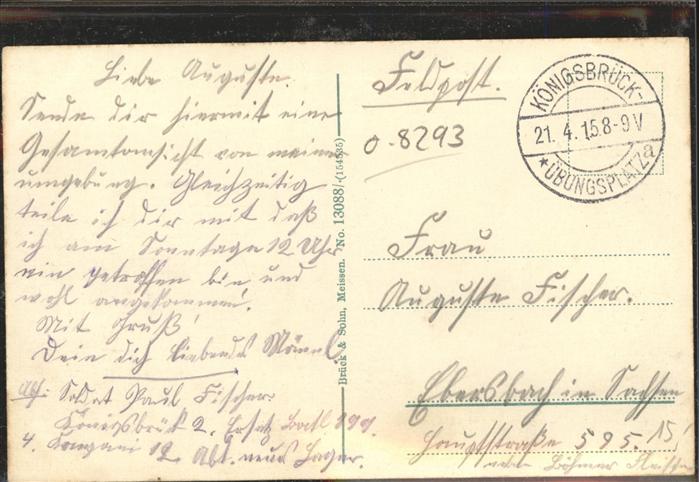 Liebe Auguste.
Sende dir hiermit eine
Gesamtansicht von meiner
umgebung. Gleichzeitig
teile ich dir mit daß
ich am Sonntage 12 Uhr
ein getroffen bin und
wohl angekommen.
Mit Gruß!
Dein dich liebendes Männel.
Abs: Soldat Paul Fischer
Königsbrück 2. Ersatz Batl
4. Kompani 12. Abt. neues Lager.
Brück & Sohn, Meissen. No. 13088/-(154535)
Feldpost.
0.8293
KÖNIGSBRÜCK-
21.4.15 8-9V
*ÜBUNGSPLATZ a
Frau
Auguste Fischer.
Ebersbach in Sachsen
Hauptstraße 595.